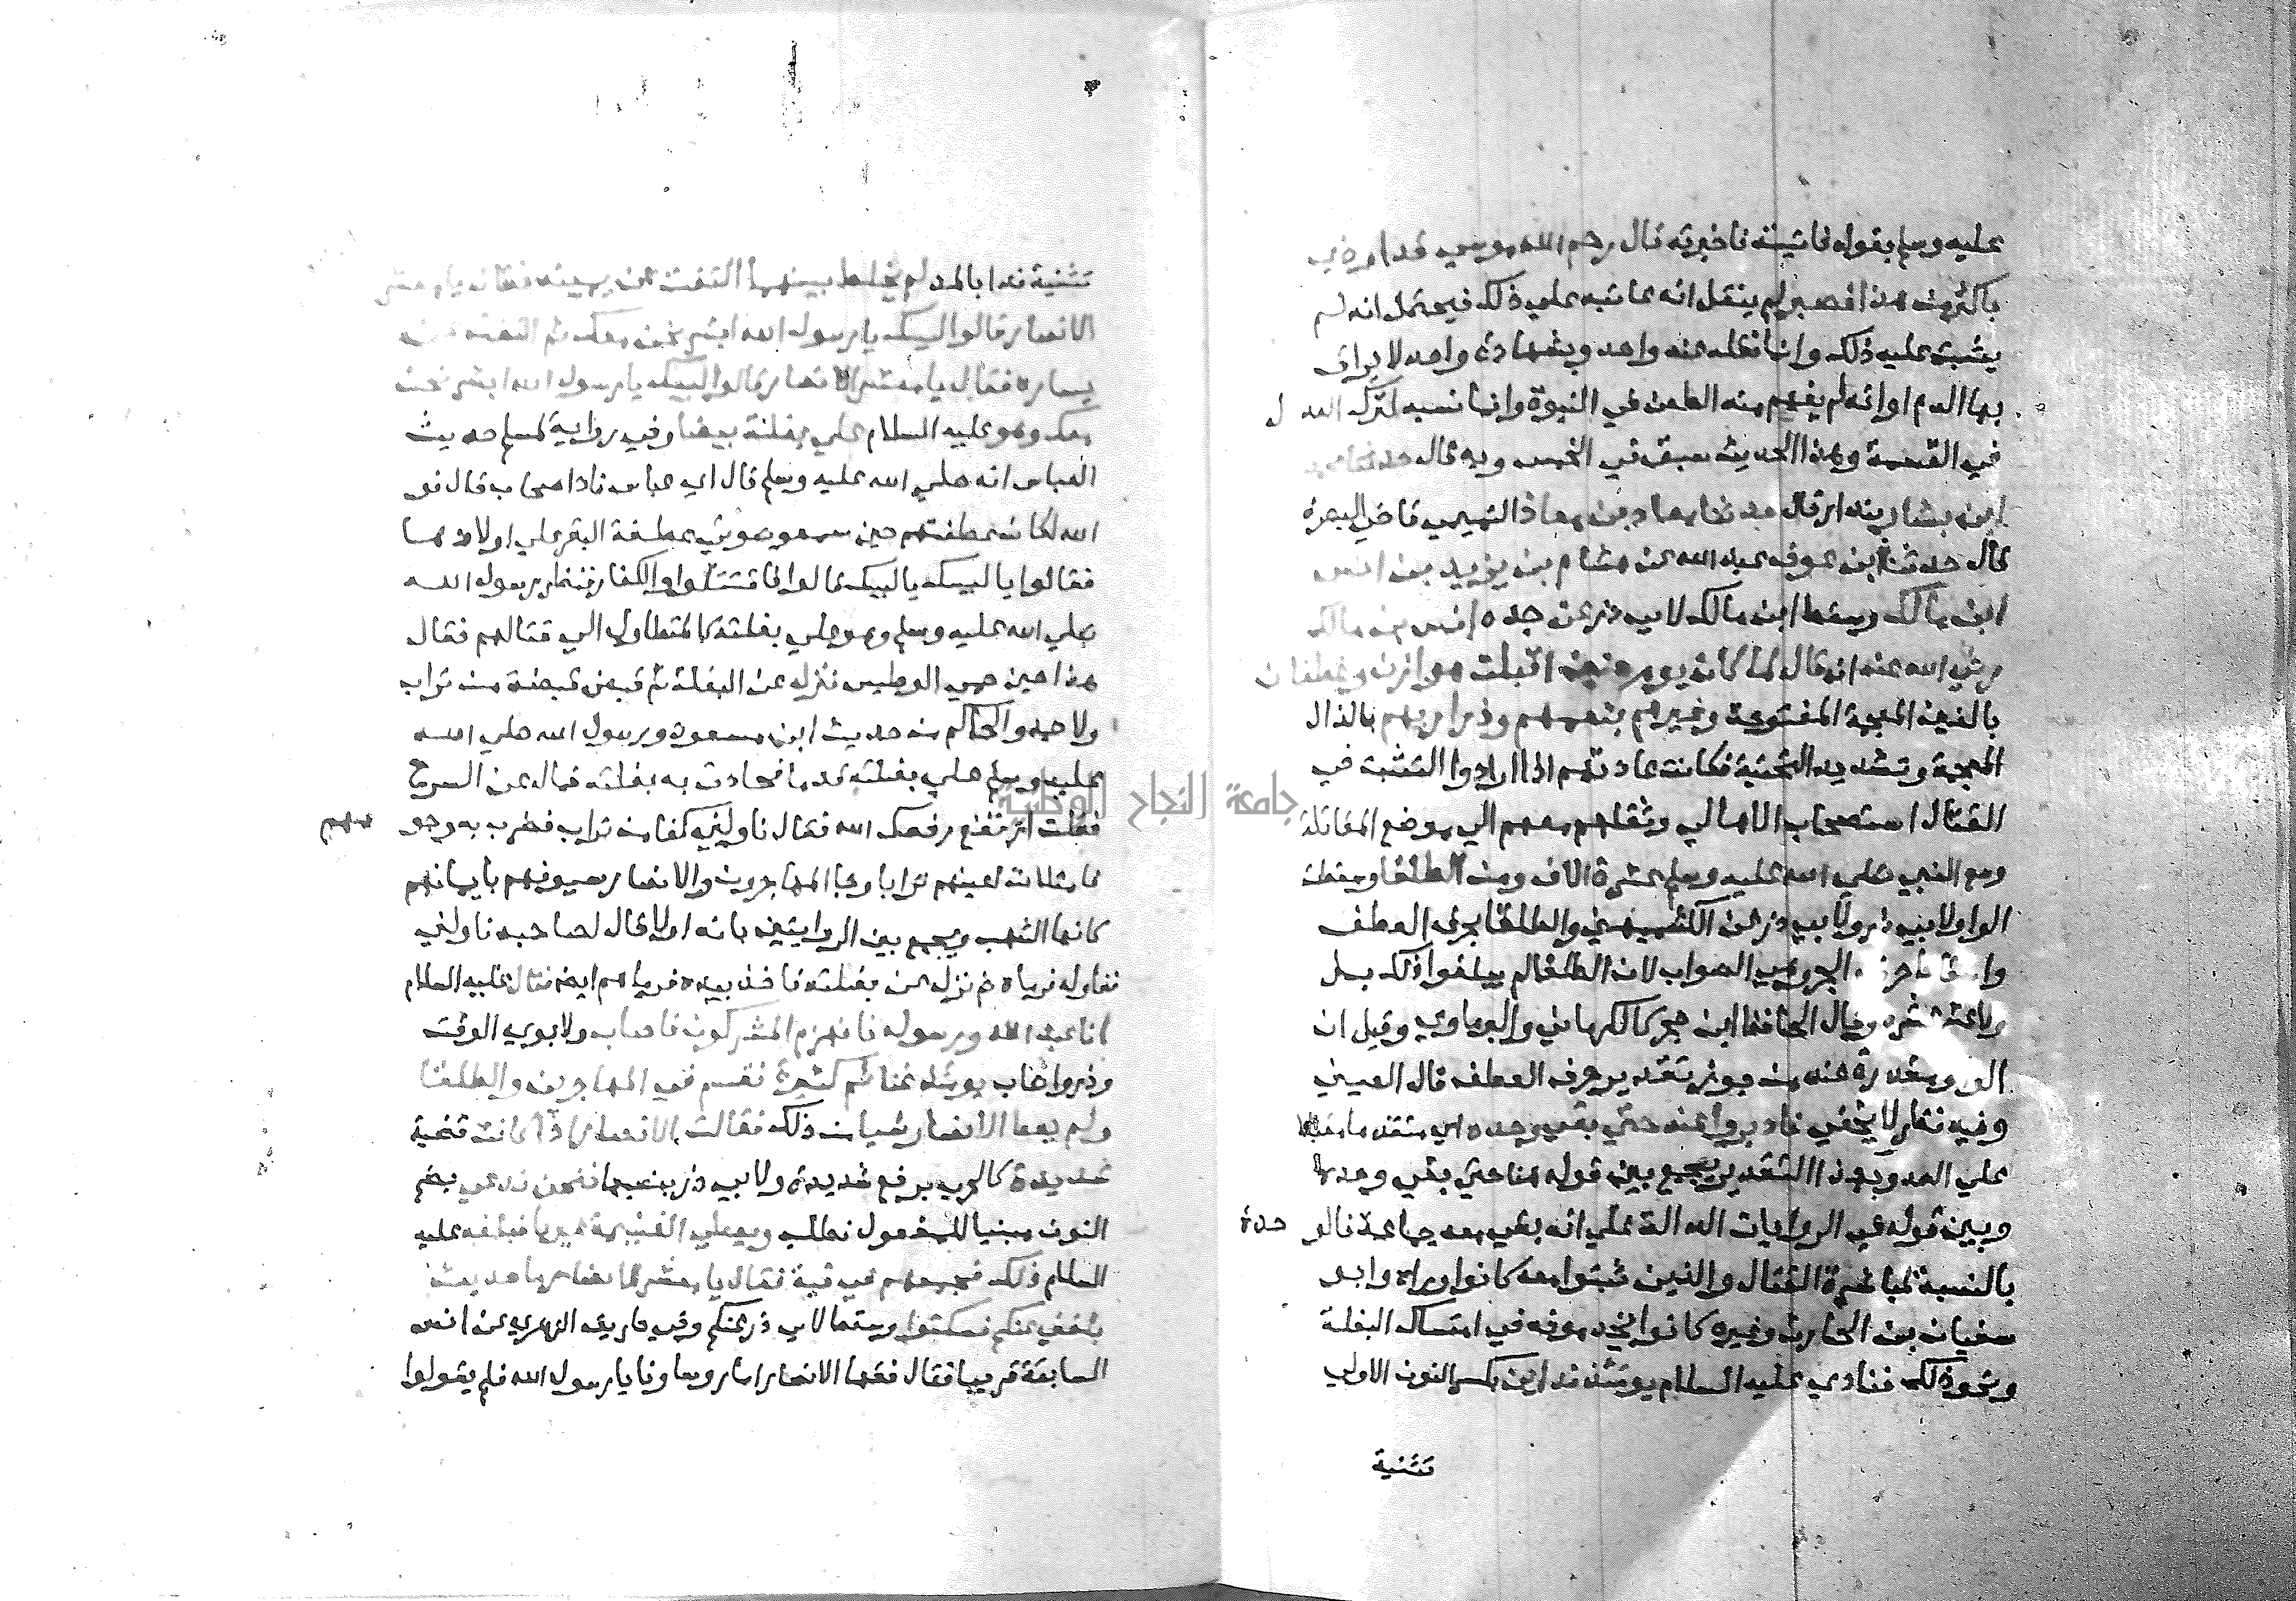 عليه وسلم بقوله فاتيته فاخبرته قال رحم الله موسي قد اوذي
باكثر من هذا فصبر لم ينقل انه عاتبه علي ذلك فيحتمل انه لم
يثبت عليه ذلك وانما نقله عنه واحد وبشهادة واحد لا يراق
بها الدم او انه لم يفهم منه الطعن في النبوة وانما نسبه لترك العدل
في القسمة وهذا الحديث سبق في الخمس وبه قال حدثنا محمد
ابن بشار بندار قال حدثنا معاذ بن معاذ التميمي قاضي البصرة
قال حدثنا ابن عوف عبد الله عن هشام بن يزيد بن انس
ابن مالك وسقط ابن مالك لابي ذر عن جده انس بن مالك
رضي الله عنه انه قال لما كان يوم حنين اقبلت هوازن وغطفان
بالغين المعجمة المفتوحة وغيرهم بنعمهم وذراريهم بالذال
المعجمة وتشديد التحتية فكانت عادتهم اذا ارادوا التثبت في
القتال استصحاب الاهالي وثقلهم معهم الي موضع المقاتلة
ومع النبي صلي الله عليه وسلم عشرة الاف ومن الطلقا وسقطت
الواو لابي ذر ولابي ذر عن الكشميهني والطلقا بحرف العطف
الجر وهي الصواب لان الطلقا لم يبلغوا ذلك بل
ولا عشر عشره وقال الحافظ ابن حجر كالكرماني والبرماوي وقيل ان
الواو مقدرة عند من جوز تقدير حرف العطف قال العيني
وفيه نظر لا يخفي فادبروا عنه حتي بقي وحده اي متقدما مقبلا
علي العدو وبهذا التقدير يجمع بين قوله هنا حتي بقي وحده
وبين قوله في الروايات الدالة علي انه بقي معه جماعة فالو حدة
بالنسبة لمباشرة القتال والذين ثبتوا معه كانوا وراه وابو
سفيان بن الحارث وغيره كانوا يخدمونه في امتساك البغلة
ونحو ذلك فنادي عليه السلام يومئذ نداءين بكسر النون الاولي
تثنية
تثنية ندا بالمد لم يخلط بينهما التفت عن يمينه فقال يا معشر
الانصار قالوا لبيك يا رسول الله ابشر نحن معك ثم التفت عن
يساره فقال يا معشر الانصار قالوا لبيك يا رسول الله ابشر نحن
معك وهو عليه السلام علي بغلة بيضا وفي رواية لمسلم حديث
العباس انه صلي الله عليه وسلم قال اي عباس ناد اصحاب قال فو
الله لكان عطفتهم حين سمعو صوتي عطفة البقر علي اولادها
فقالوا يا لبيك يا لبيك قالوا فاقتتلوا والكفار فنظر رسول الله
صلي الله عليه وسلم وهو علي بغلته كالمتطاول الي قتالهم فقال
هذا حين حمي الوطيس فنزله عن البغلة ثم قبض قبضة من تراب
ولاحمد والحاكم من حديث ابن مسعود ورسول الله صلي الله
عليه وسلم علي بغلته قدما فحادت به بغلته فمال عن السرج
فقلت ارتفع رفعك الله فقال ناولني كفا من تراب فضرب به وجوههم
فامتلات اعينهم ترابا وجا المهاجرون والانصار سيوفهم بايمانهم
كانها الشهب ويجمع بين الروايتين بانه اولا قال لصاحبه ناولني
فناوله فرماه ثم نزل عن بغلته فاخذ بيده فرماهم ايضا فقال عليه السلام
انا عبد الله ورسوله فانهزم المشركون فاصاب ولابوي الوقت
وذر واصاب يومئذ غنائم كثيرة فقسم في المهاجرين والطلقا
ولم يعط الانصار شيا من ذلك فقالت الانصار اذا كانت قضية
شديدة كالحرب برفع شديدة ولابي ذر بنصبها فنحن ندعي بضم
النون مبنيا للمفعول نطلب ويعطي الغنيمة غيرنا فبلغه عليه
السلام ذلك فجمعهم في قبة فقال يا معشر الانصار ما حديث
بلغني عنكم فسكتوا وسقط لابي ذر عنكم وفي طريق الزهري عن انس
السابقة قريبا فقال فقها الانصار اما روساونا يا رسول الله فلم يقولوا
جامعة النجاح الوطنية